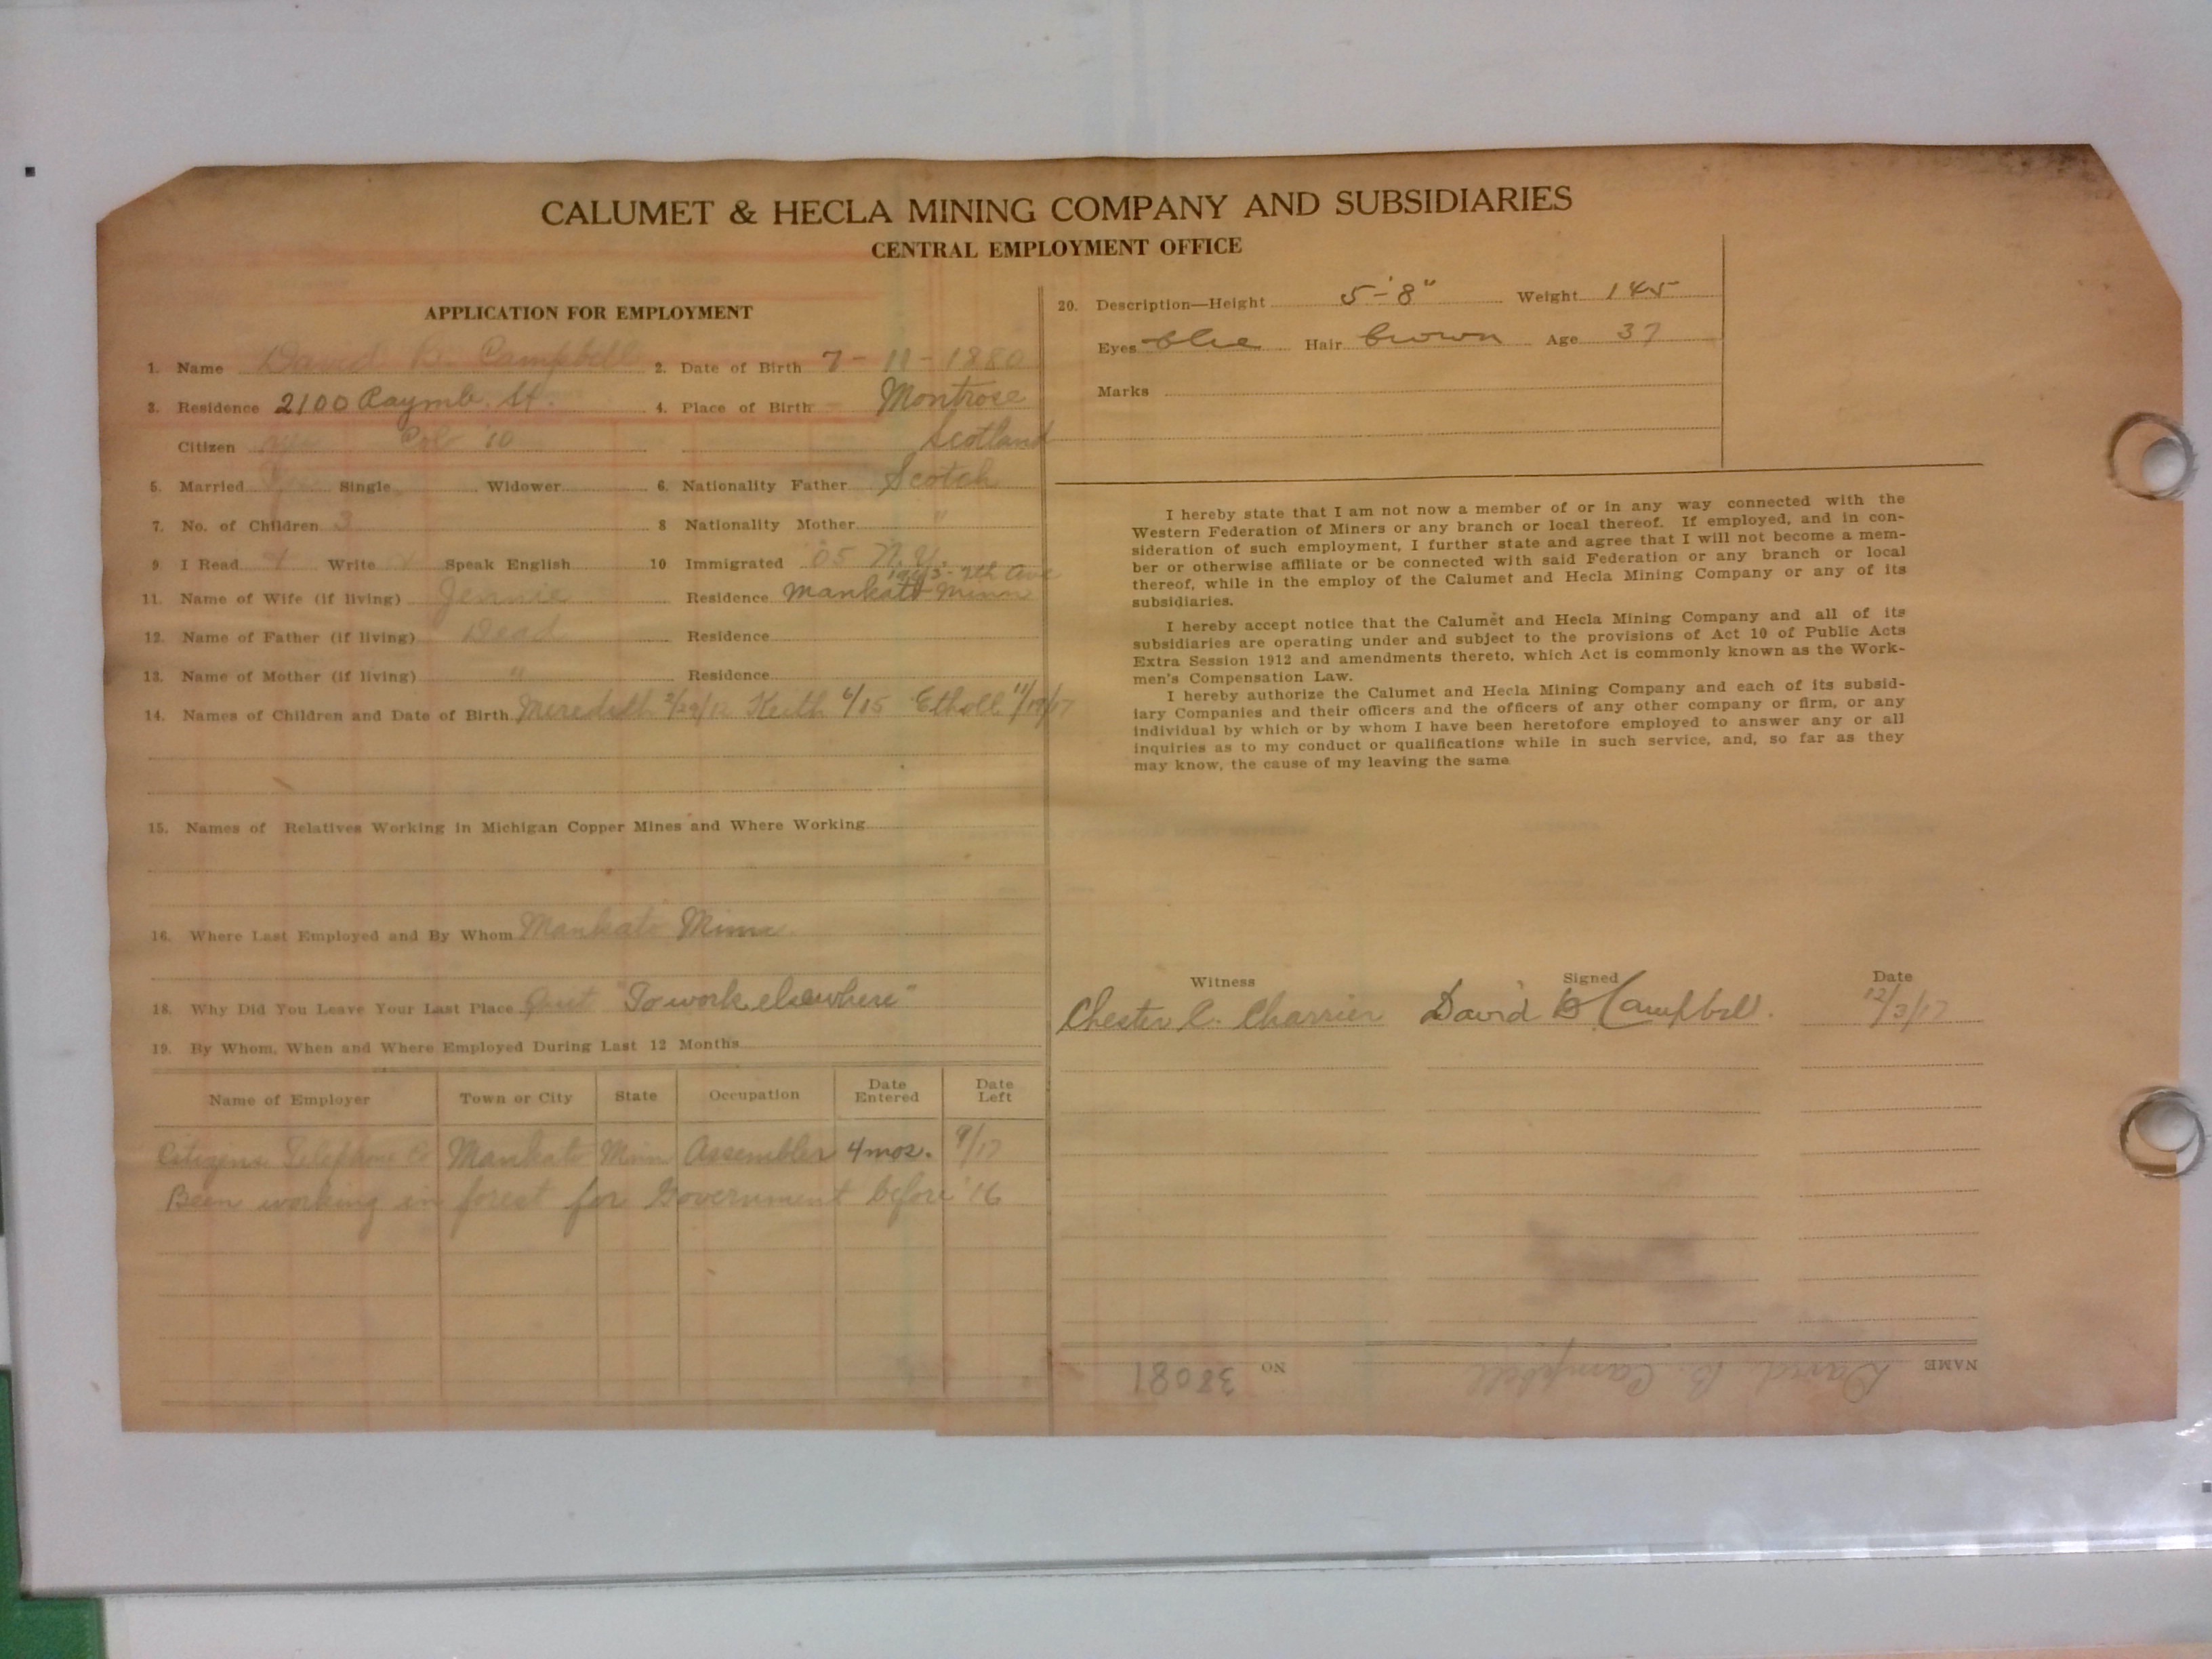 CALUMET & HECLA MINING COMPANY AND SUBSIDIARIES
CENTRAL EMPLOYMENT OFFICE
APPLICATION FOR EMPLOYMENT
1. Name David B. Campbell 2. Date of Birth 7 - 11 - 1880
3. Residence 2100 St. 4. Place of Birth Montrose
Citizen yes '10 Scotland
5. Married Single Widower 6. Nationality Father Scotch
7. No. of Children 3 8 Nationality Mother "
9. I Read Write Speak English 10 Immigrated '05 N.Y.
7th Ave
11. Name of Wife (if living) Jennie Residence Mankato Minn
12. Name of Father (if living) Dead Residence
13. Name of Mother (if living) " Residence
14. Names of Children and Date of Birth Meredith Keith 6/15
15. Names of Relatives Working in Michigan Copper Mines and Where Working
16. Where Last Employed and By Whom Mankato Minn
18. Why Did You Leave Your Last Place Quit "To work elsewhere"
19. By Whom, When and Where Employed During Last 12 Months
Name of Employer Town or City State Occupation Date Entered Date Left
Citizens Telephone Co Mankato Minn Assembler 4 mos. 9/17
Been working in forest for Government before '16
20. Description—Height 5-'8" Weight 145
Eyes blue Hair brown Age 37
Marks
I hereby state that I am not now a member of or in any way connected with the
Western Federation of Miners or any branch or local thereof. If employed, and in con-
sideration of such employment, I further state and agree that I will not become a mem-
ber or otherwise affiliate or be connected with said Federation or any branch or local
thereof, while in the employ of the Calumet and Hecla Mining Company or any of its
subsidiaries.
I hereby accept notice that the Calumet and Hecla Mining Company and all of its
subsidiaries are operating under and subject to the provisions of Act 10 of Public Acts
Extra Session 1912 and amendments thereto, which Act is commonly known as the Work-
men's Compensation Law.
I hereby authorize the Calumet and Hecla Mining Company and each of its subsid-
iary Companies and their officers and the officers of any other company or firm, or any
individual by which or by whom I have been heretofore employed to answer any or all
inquiries as to my conduct or qualifications while in such service, and, so far as they
may know, the cause of my leaving the same
Witness Signed Date
Chester C. Charrier David B Campbell. 12/3/17
NAME David B. Campbell NO 38081